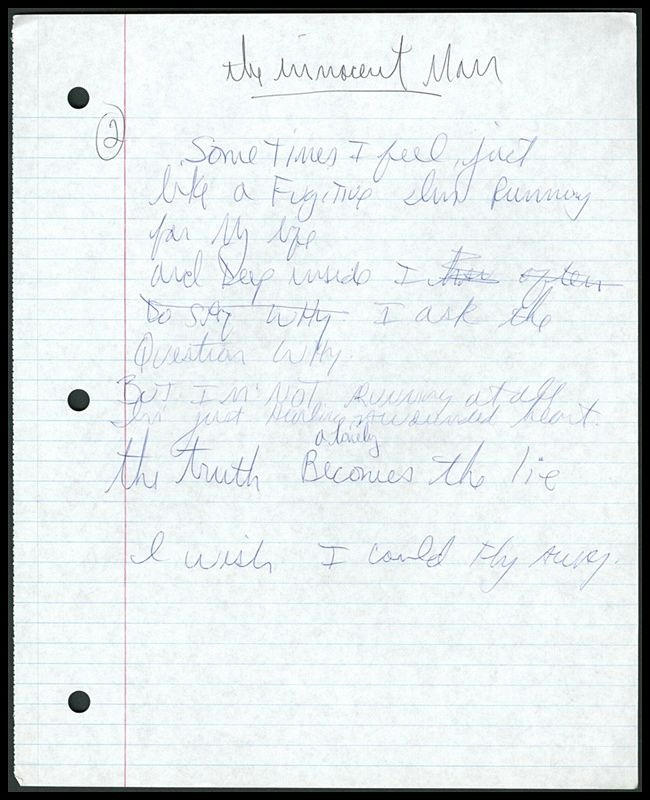 the innocent Man
2
Some Times I feel just
like a Fugitive Im Running
for My life
and Deep inside I often
Do SAy WHy I ask the
Question WHy.
BUT IM NOT Running at all
Im just nursing a wounded heart.
a lonely
the truth Becomes the lie
I wish I could Fly Away.